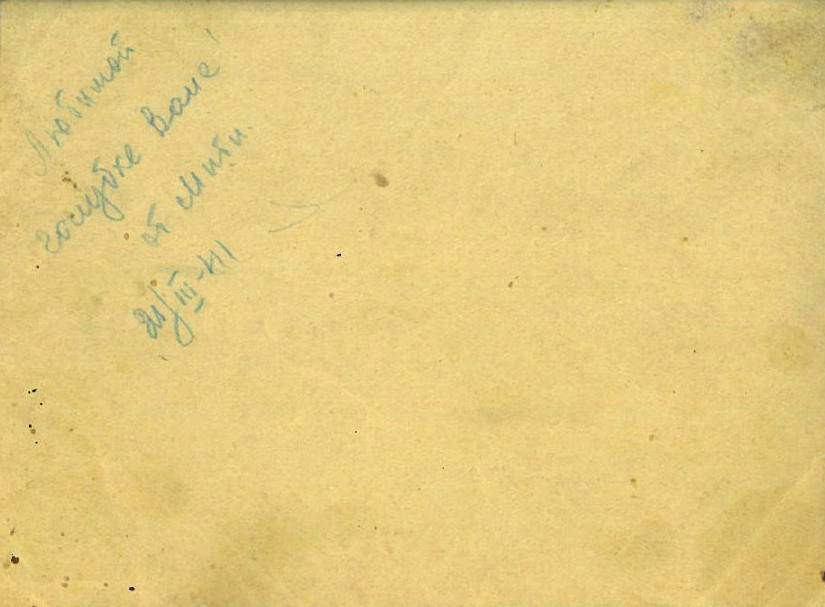 Любимой
голубке Вале!
от Мити.
21/III-41